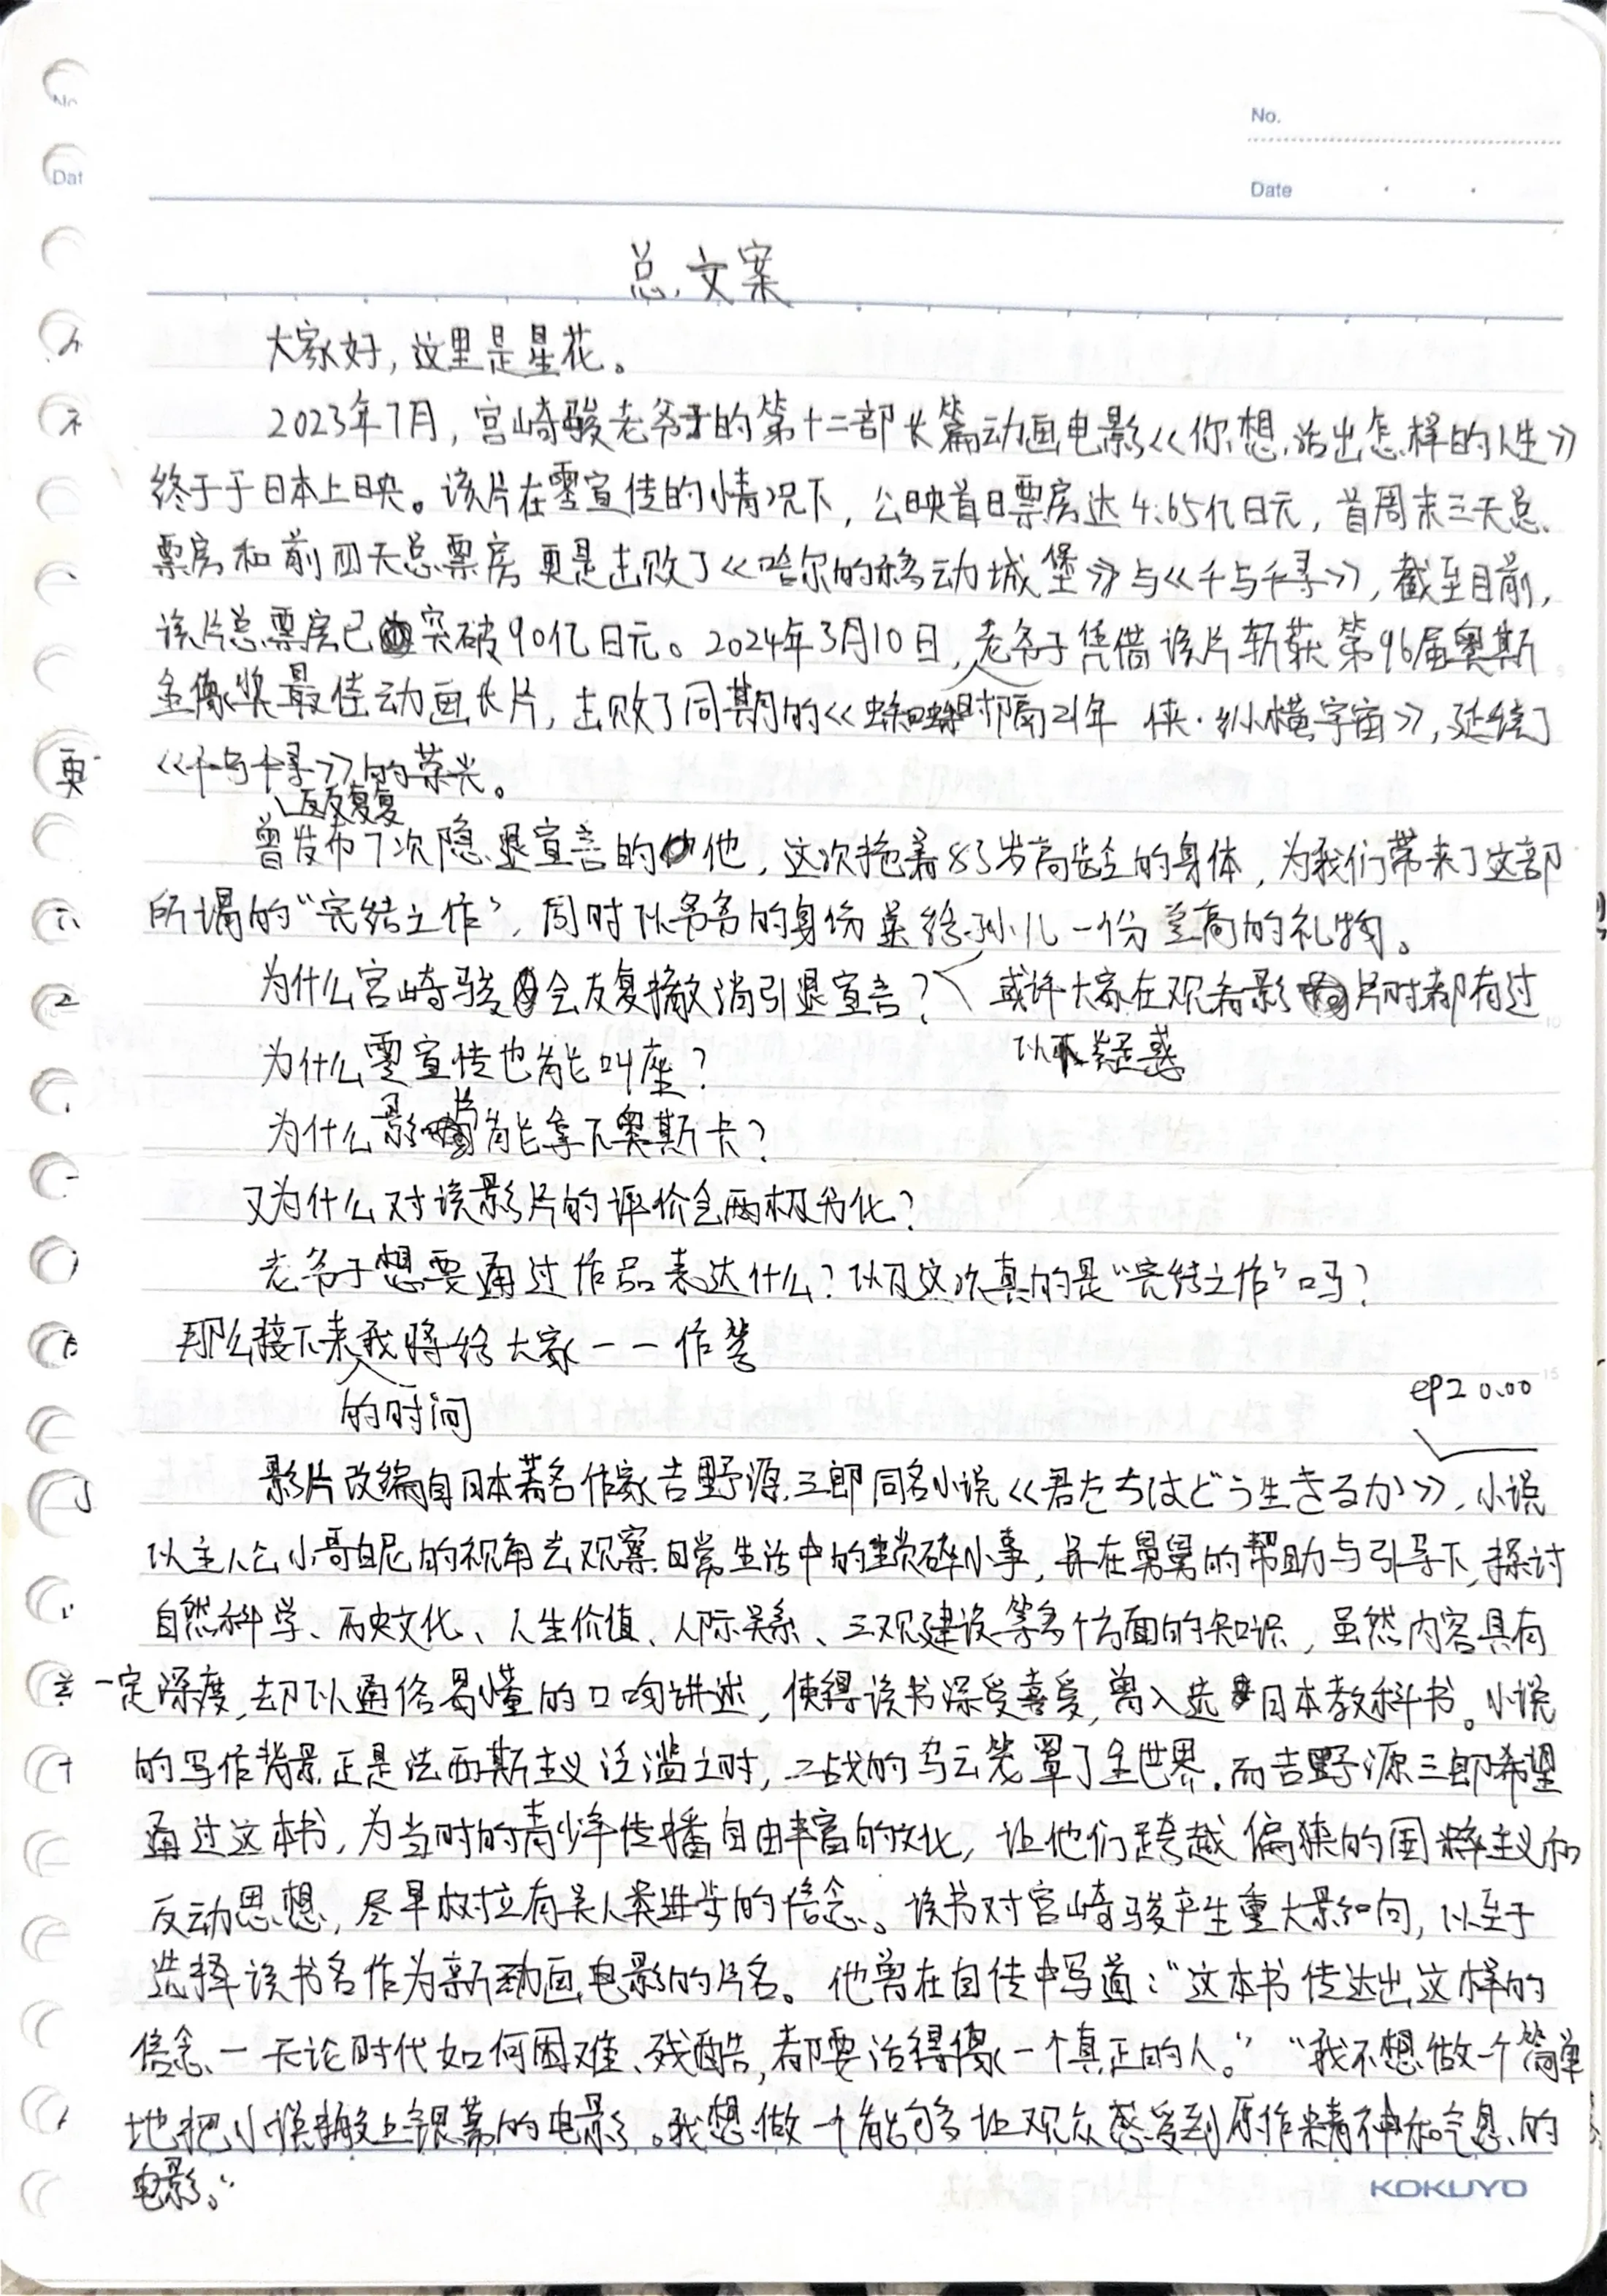 No.
Date
总文案
大家好，这里是星花。
2023年7月，宫崎骏老爷子的第十二部长篇动画电影《你想活出怎样的人生》
终于于日本上映。该片在零宣传的情况下，公映首日票房达4.65亿日元，首周末三天总
票房和前四天总票房更是击败了《哈尔的移动城堡》与《千与千寻》，截至目前，
该片总票房已突破90亿日元。2024年3月10日，老爷子凭借该片斩获第96届奥斯
金像奖最佳动画长片，击败了同期的《蜘蛛侠·纵横宇宙》，延续了
时隔21年
《千与千寻》的荣光。
反反复复
曾发布7次隐退宣言的他，这次拖着83岁高龄的身体，为我们带来了这部
所谓的“完结之作”，同时以爷爷的身份送给孙儿一份至高的礼物。
为什么宫崎骏会反复撤消引退宣言？
或许大家在观看影片时都有过
以下疑惑
为什么零宣传也能叫座？
为什么影片能拿下奥斯卡？
又为什么对该影片的评价会两极分化？
老爷子想要通过作品表达什么？以及这次真的是“完结之作”吗？
那么接下来我将给大家一一作答
的时间
ep2 0.00
影片改编自日本著名作家吉野源三郎同名小说《君たちはどう生きるか》，小说
以主人公小哥白尼的视角去观察日常生活中的琐碎小事，并在舅舅的帮助与引导下，探讨
自然科学、历史文化、人生价值、人际关系、三观建设等多个方面的知识，虽然内容具有
一定深度，却以通俗易懂的口吻讲述，使得该书深受喜爱，曾入选日本教科书。小说
的写作背景正是法西斯主义泛滥之时，二战的乌云笼罩了全世界，而吉野源三郎希望
通过这本书，为当时的青少年传播自由丰富的文化，让他们跨越偏狭的国粹主义和
反动思想，尽早树立有关人类进步的信念。该书对宫崎骏产生重大影响，以至于
选择该书名作为新动画电影的片名。他曾在自传中写道：“这本书传达出这样的
信念、一无论时代如何困难、残酷，都要活得像一个真正的人。”“我不想做一个简单
地把小说搬上银幕的电影。我想做一个能够让观众感受到原作精神和气息的
电影。”
KOKUYO